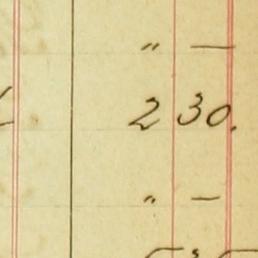 " —
2 30.
" —